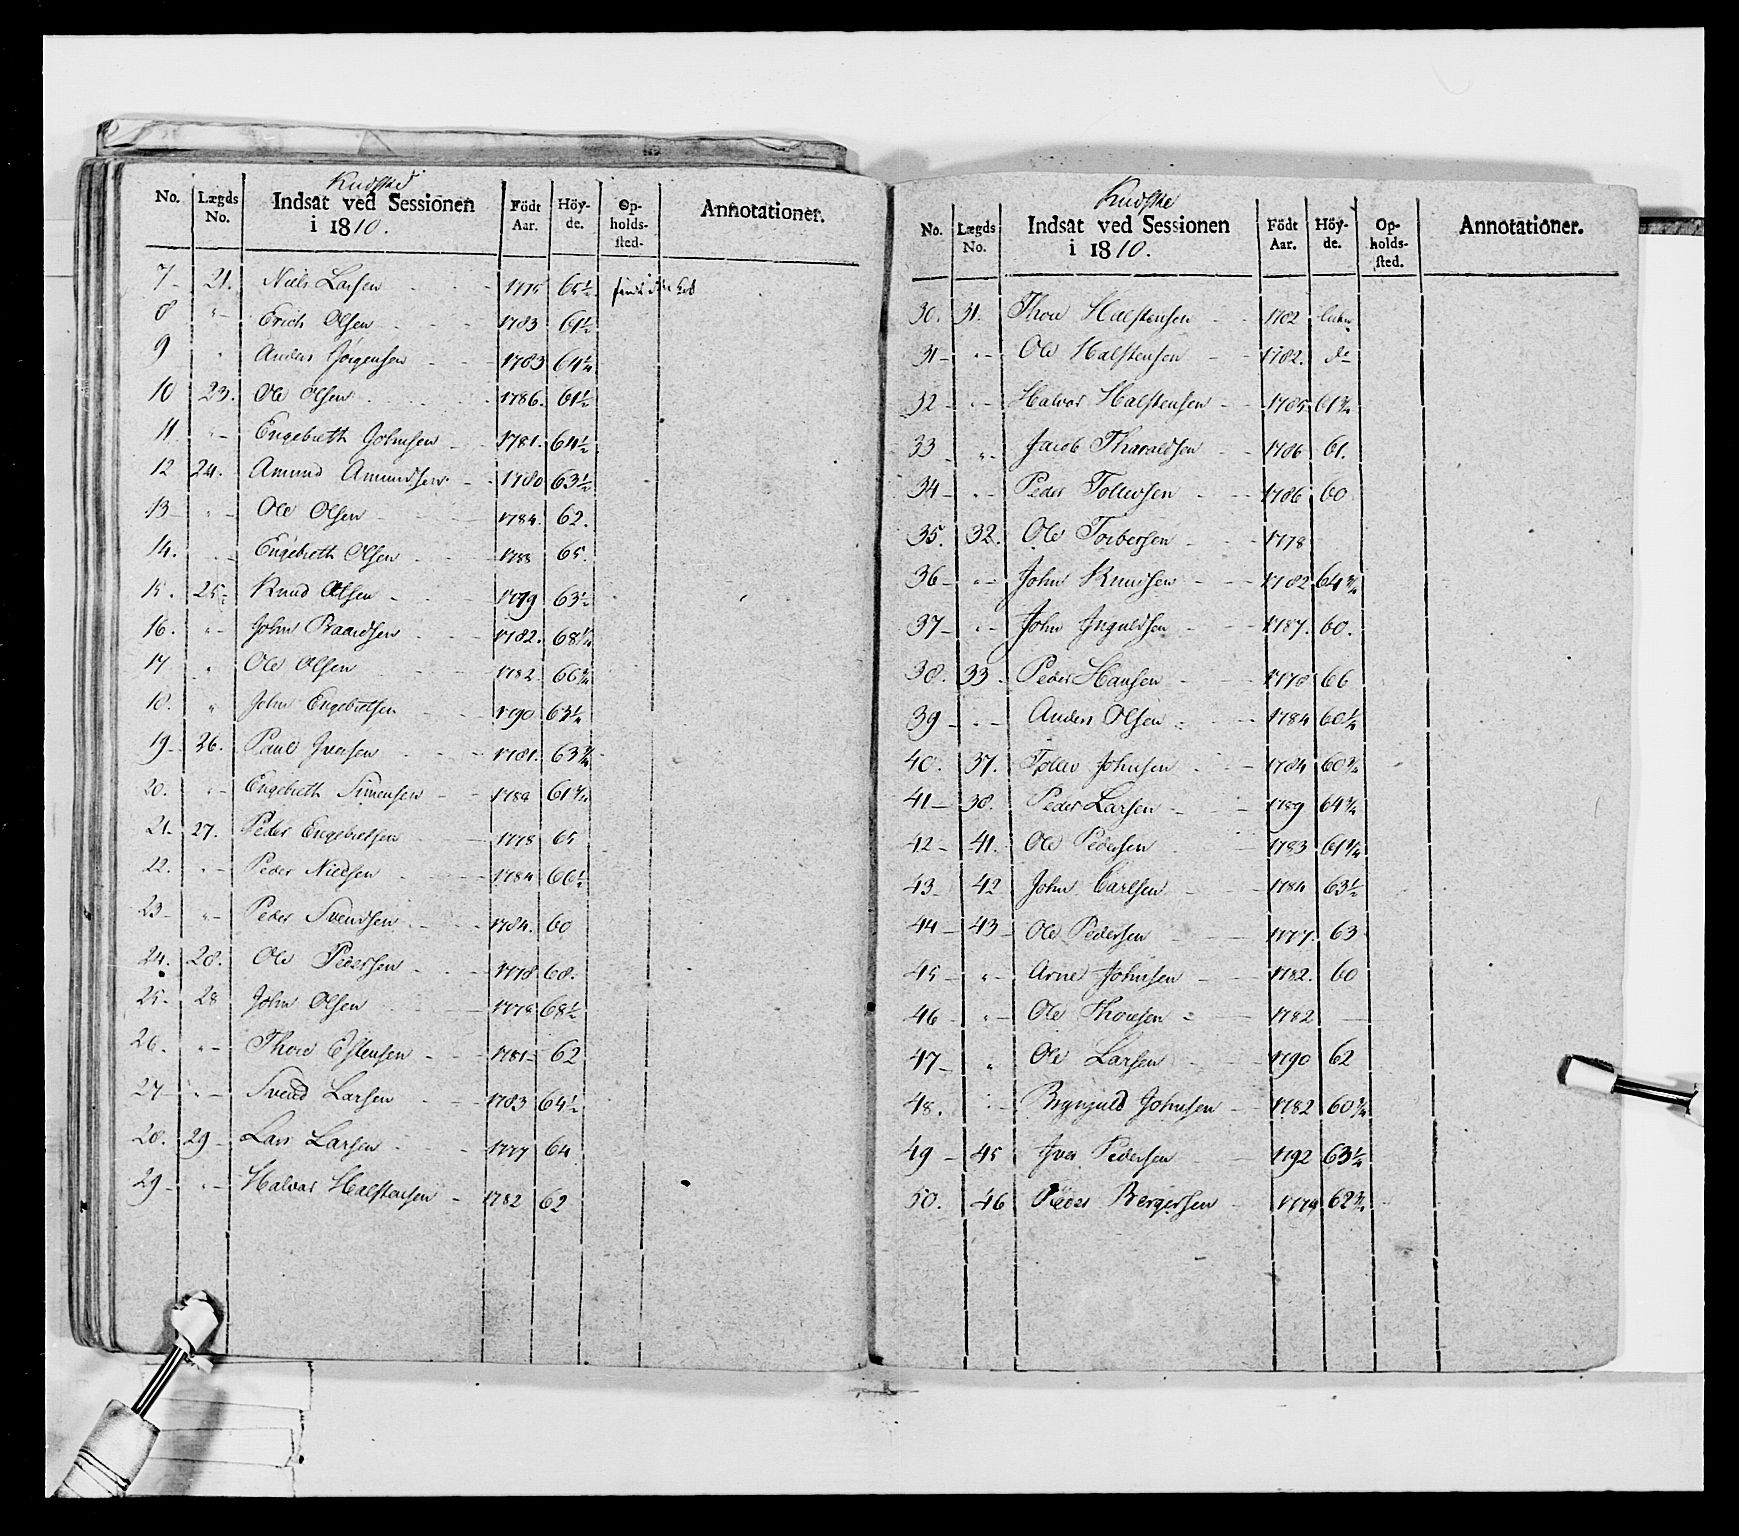 Kudske
No. Lægds No. Indsat ved Sessionen i 1810. Födt Aar. Höyde. Opholdssted. Annotationer.
7 - 21. Niels Larsen - 1775 65½
8 " - Erich Olsen - 1783 61½
9 " Anders Jörgensen - 1783 64¼
10 23. Ole Olsen - 1786. 61½
11 " - Engebreth Johnsen - 1781. 64½
12 24. Amund Amundsen - 1780 63½
13 - " - Ole Olsen - 1784. 62.
14. " - Engebreth Olsen - 1788 65.
15. 25 - Knud Olsen - 1779 63½
16. " - John Baardsen - 1782. 68¼
17 " Ole Olsen - 1782 66¾
18. " John Engebretsen - 1790 63¼
19 - 26. Paul Iversen - 1781. 63¾
20. " - Engebreth Simensen - 61¾
21 - 27. Peder Engebretsen - 1778 65
22. " - Peder Nielsen - 1784 66½
23 - " - Peder Svendsen - 1784. 60
24. 28. Ole Pedersen - 1778. 68.
25 - 28 John Olsen - 1778 68½
26. " - Thore Estensen - 1781 - 62
27 - " - Svend Larsen - 1783 64½
28. 29 - Lars Larsen - 1777 64
29 - " - Halvor Halstensen - 1782 62
Kudske
No. Lægds No. Indsat ved Sessionen i 1810. Födt Aar. Höyde. Opholdssted. Annotationer.
30. 31. Thore Halstensen - 1782
31 - " - Ole Halstensen - 1782. do
32 - " - Halvor Halstensen - 1785 61¾
33 " Jacob Tharaldsen - 1786 61.
34 - " - Peder Tollevsen - 1786 60
35. 32. Ole Torbersen - 1778
36 - " - John Knudsen - 1782 64¾
37 - " - John Inguldsen - 1787. 60.
38. 33. Peder Hansen - 1778 66
39 - " - Anders Olsen - 1784 60¼
40. 37. Tollev Johnsen - 1784 60¾
41 - 38. Peder Larsen - 1789 64¾
42 - 41. Ole Pedersen - 1783 61¾
43 - 42 John Carlsen - 1784 63½
44 - 43 - Ole Pedersen - 1777. 63
45 - " - Arne Johnsen - 1782. 60
46 - " - Ole Thoresen - 1782 —
47 - " Ole Larsen - 1790 62
48. " - Johnsen - 1782 60¾
49 - 45 Iver Pedersen - 1792 63¼
50. 46 Peder Bergersen - 1779 62¾